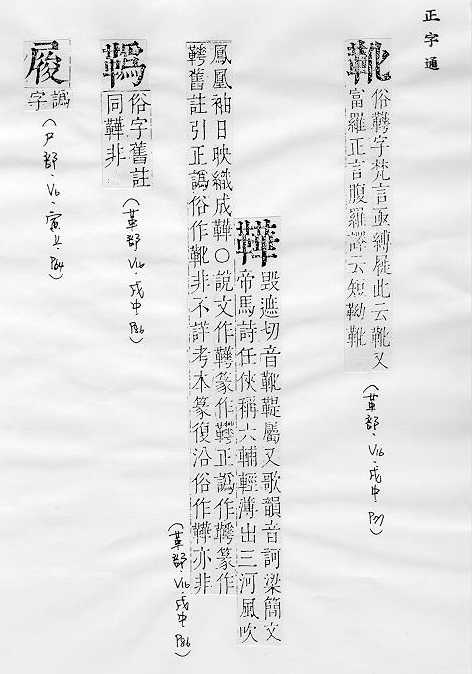 正字通
靴
俗鞾字梵言亟縛屣此云靴又
富羅正言腹羅譯云短靿靴
(革部.V16.戌中 P37)
鞾
毀遮切音靴鞮屬又歌韻音訶梁簡文
帝馬詩任俠稱六輔輕薄出三河風吹
鳳凰袖日映織成鞾○說文作鞾篆作鞾正譌作鞾篆作
鞾舊註引正譌俗作靴非不詳考本篆復沿俗作鞾亦非
(革部.V16.戌中 P36)
俗字舊註
同鞾非
(革部.V16.戌中 P36)
譌
字